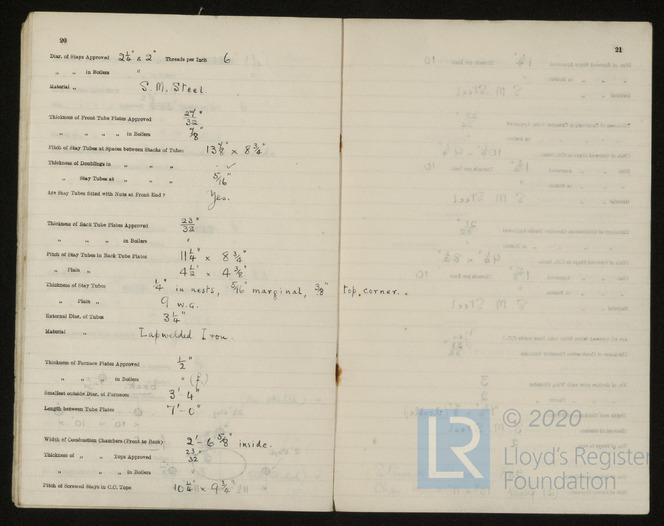 20
Diar. of Stays Approved 2 1/4" & 2" Threads per Inch 6
" " in Boilers "
Material " S. M. Steel.
Thickness of Front Tube Plates Approved 27/32"
" " " " in Boilers 7/8"
Pitch of Stay Tubes at Spaces between Stacks of Tubes 13 7/8" × 8 3/4"
Thickness of Doublings in " " "
" Stay Tubes at " " " 5/16"
Are Stay Tubes fitted with Nuts at Front End? Yes.
Thickness of Back Tube Plates Approved 23/32"
" " " " in Boilers "
Pitch of Stay Tubes in Back Tube Plates 11 1/4" × 8 3/4"
" Plain " 4 1/2" × 4 3/8"
Thickness of Stay Tubes 1/4" in nests, 5/16" marginal, 3/8" top corner.
" Plain " 9 W.G.
External Diar. of Tubes 3 1/4"
Material " Lapwelded Iron.
Thickness of Furnace Plates Approved 1/2"
" " " in Boilers " (f)
Smallest outside Diar. of Furnaces 3' 4"
Length between Tube Plates 7'-0"
Width of Combustion Chambers (Front to Back) 2'-6 5/8" inside.
Thickness of " " Tops Approved 23/32"
" " " " in Boilers "
Pitch of Screwed Stays in C.C. Tops 10 1/4" × 9 3/4"
21
© 2020
LR
Lloyd's Register
Foundation